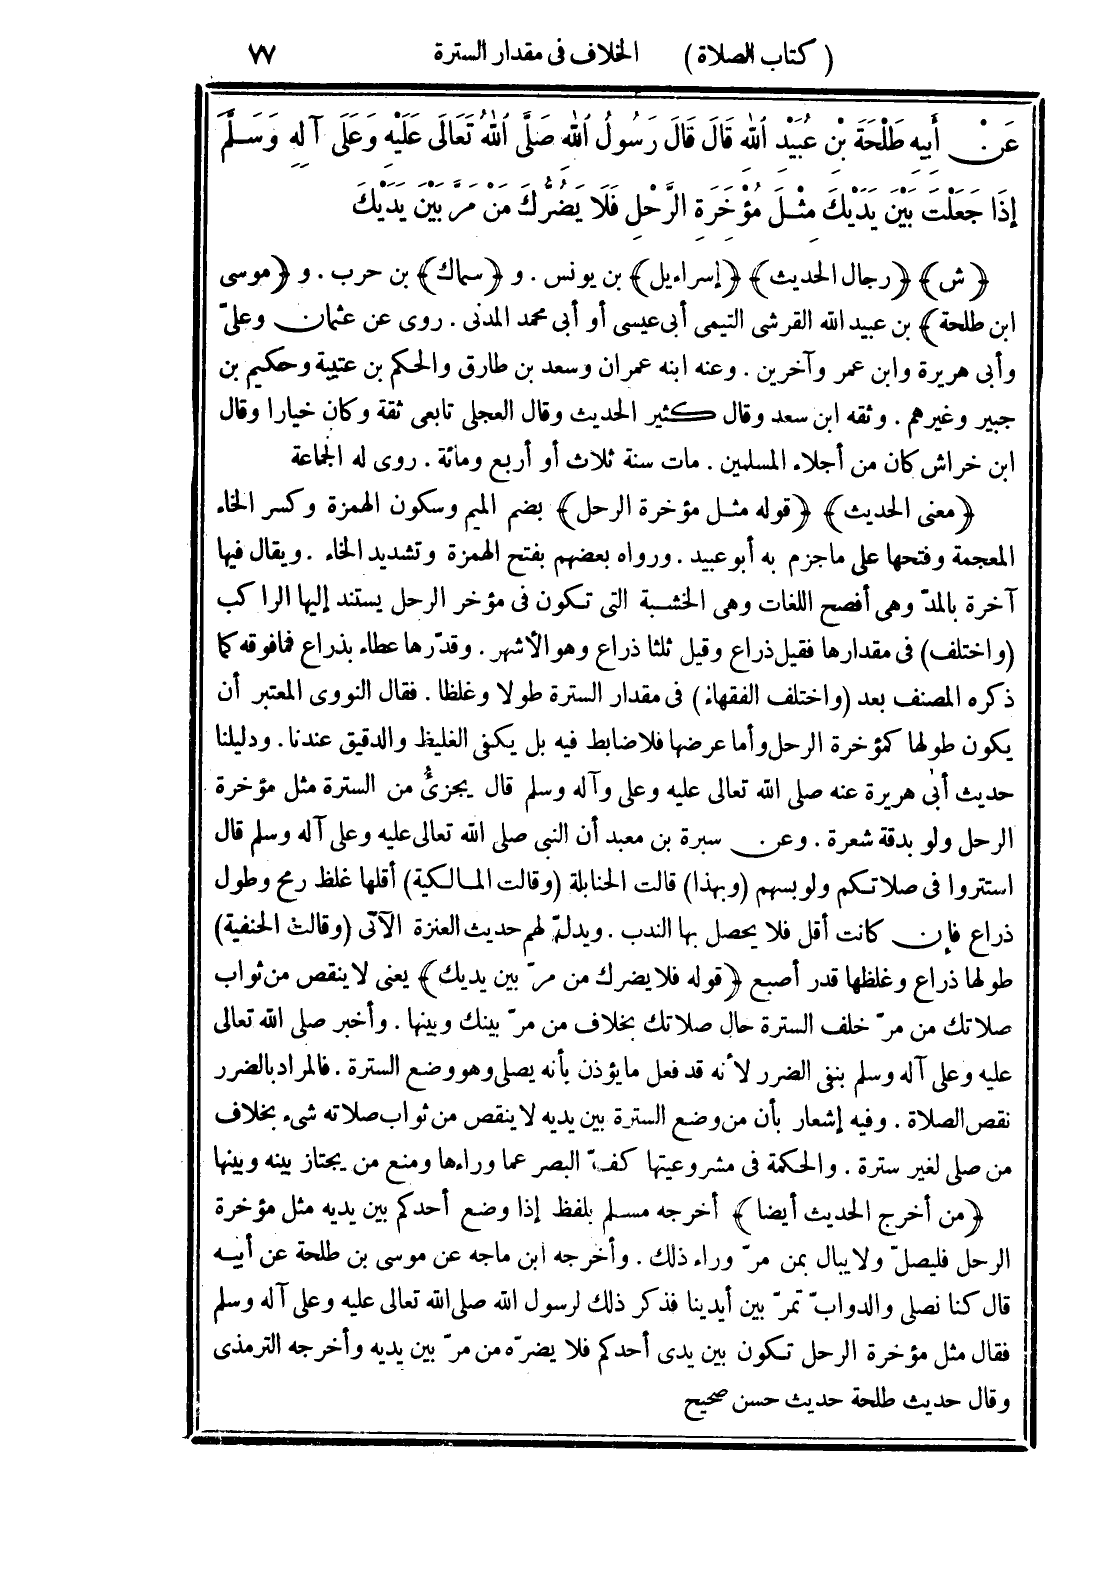 ( كتاب الصلاة ) الخلاف فى مقدار السترة ٧٧
عَنْ أَبِيهِ طَلْحَةَ بْنِ عُبَيْدِ اللهِ قَالَ قَالَ رَسُولُ اللهِ صَلَّى اللهُ تَعَالَى عَلَيْهِ وَعَلَى آلِهِ وَسَلَّمَ
إِذَا جَعَلْتَ بَيْنَ يَدَيْكَ مِثْلَ مُؤْخَرَةِ الرَّحْلِ فَلَا يَضُرُّكَ مَنْ مَرَّ بَيْنَ يَدَيْكَ
﴿ ش ﴾ ﴿ رجال الحديث ﴾ ﴿ إسراءيل ﴾ بن يونس . و ﴿ سماك ﴾ بن حرب . و ﴿ موسى
ابن طلحة ﴾ بن عبيد الله القرشى التيمى أبى عيسى أو أبى محمد المدنى . روى عن عثمان وعلىّ
وأبى هريرة وابن عمر وآخرين . وعنه ابنه عمران وسعد بن طارق والحكم بن عتيبة وحكيم بن
جبير وغيرهم . وثقه ابن سعد وقال كثير الحديث وقال العجلى تابعى ثقة وكان خيارا وقال
ابن خراش كان من أجلاء المسلمين . مات سنة ثلاث أو أربع ومائة . روى له الجماعة
﴿ معنى الحديث ﴾ ﴿ قوله مثل مؤخرة الرحل ﴾ بضم الميم وسكون الهمزة وكسر الخاء
المعجمة وفتحها على ماجزم به أبو عبيد . ورواه بعضهم بفتح الهمزة وتشديد الخاء . ويقال فيها
آخرة بالمدّ وهى أفصح اللغات وهى الخشبة التى تكون فى مؤخر الرحل يستند إليها الراكب
(واختلف) فى مقدارها فقيل ذراع وقيل ثلثا ذراع وهو الأشهر . وقدّرها عطاء بذراع فمافوقه كما
ذكره المصنف بعد (واختلف الفقهاء) فى مقدار السترة طولا وغلظا . فقال النووى المعتبر أن
يكون طولها كمؤخرة الرحل وأما عرضها فلاضابط فيه بل يكفى الغليظ والدقيق عندنا . ودليلنا
حديث أبى هريرة عنه صلى الله تعالى عليه وعلى وآله وسلم قال يجزئُ من السترة مثل مؤخرة
الرحل ولو بدقة شعرة . وعن سبرة بن معبد أن النبى صلى الله تعالى عليه وعلى آله وسلم قال
استتروا فى صلاتكم ولو بسهم (وبهذا) قالت الحنابلة (وقالت المالكية) أقلها غلظ رمح وطول
ذراع فإن كانت أقل فلا يحصل بها الندب . ويدلّ لهم حديث العنزة الآتى (وقالت الحنفية)
طولها ذراع وغلظها قدر أصبع ﴿ قوله فلا يضرك من مرّ بين يديك ﴾ يعنى لا ينقص من ثواب
صلاتك من مرّ خلف السترة حال صلاتك بخلاف من مرّ بينك وبينها . وأخبر صلى الله تعالى
عليه وعلى آله وسلم بنفى الضرر لأنه قد فعل مايؤذن بأنه يصلى وهو وضع السترة . فالمراد بالضرر
نقص الصلاة . وفيه إشعار بأن من وضع السترة بين يديه لاينقص من ثواب صلاته شىء بخلاف
من صلى لغير سترة . والحكمة فى مشروعيتها كفّ البصر عما وراءها ومنع من يجتاز بينه وبينها
﴿ من أخرج الحديث أيضا ﴾ أخرجه مسلم بلفظ إذا وضع أحدكم بين يديه مثل مؤخرة
الرحل فليصلّ ولايبال بمن مرّ وراء ذلك . وأخرجه ابن ماجه عن موسى بن طلحة عن أبيه
قال كنا نصلى والدوابّ تمرّ بين أيدينا فذكر ذلك لرسول الله صلى الله تعالى عليه وعلى آله وسلم
فقال مثل مؤخرة الرحل تكون بين يدى أحدكم فلا يضرّه من مرّ بين يديه وأخرجه الترمذى
وقال حديث طلحة حديث حسن صحيح